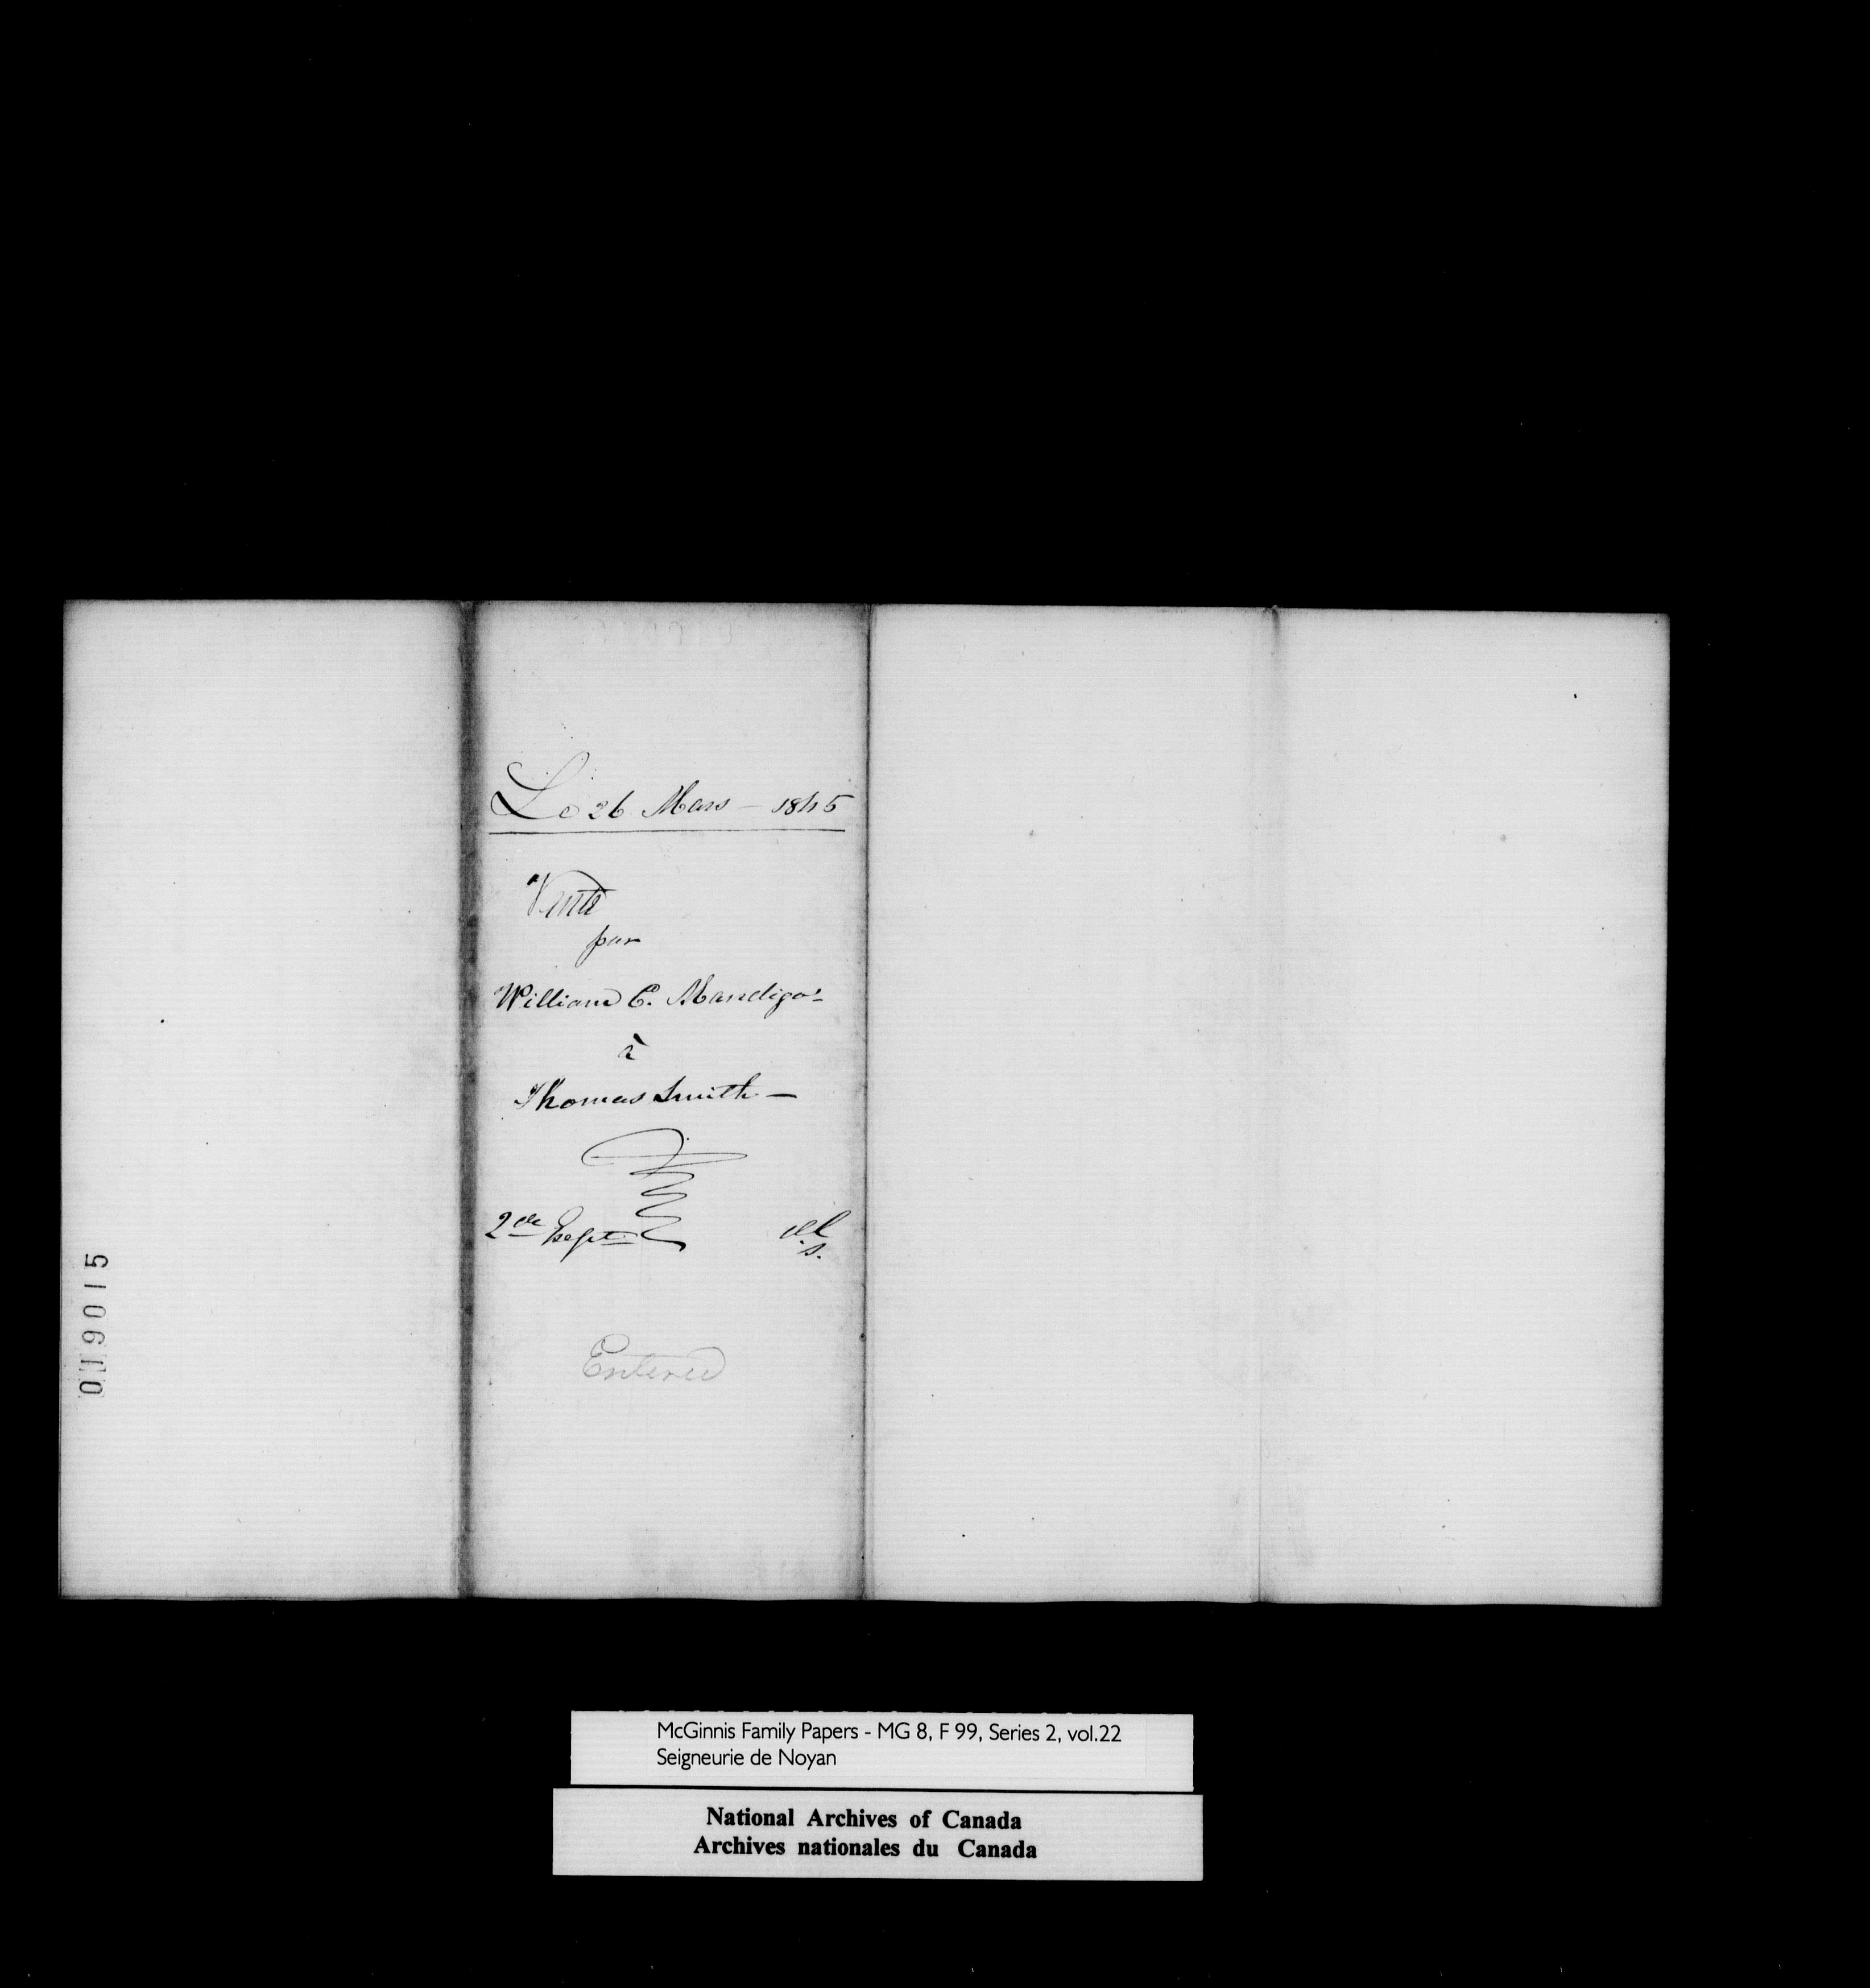 Le 26 Mars — 1845
Vente
par
William C. Mandigo
à
Thomas Smith —
2de Expte
Entered
019015
McGinnis Family Papers - MG 8, F 99, Series 2, vol.22
Seigneurie de Noyan
National Archives of Canada
Archives nationales du Canada